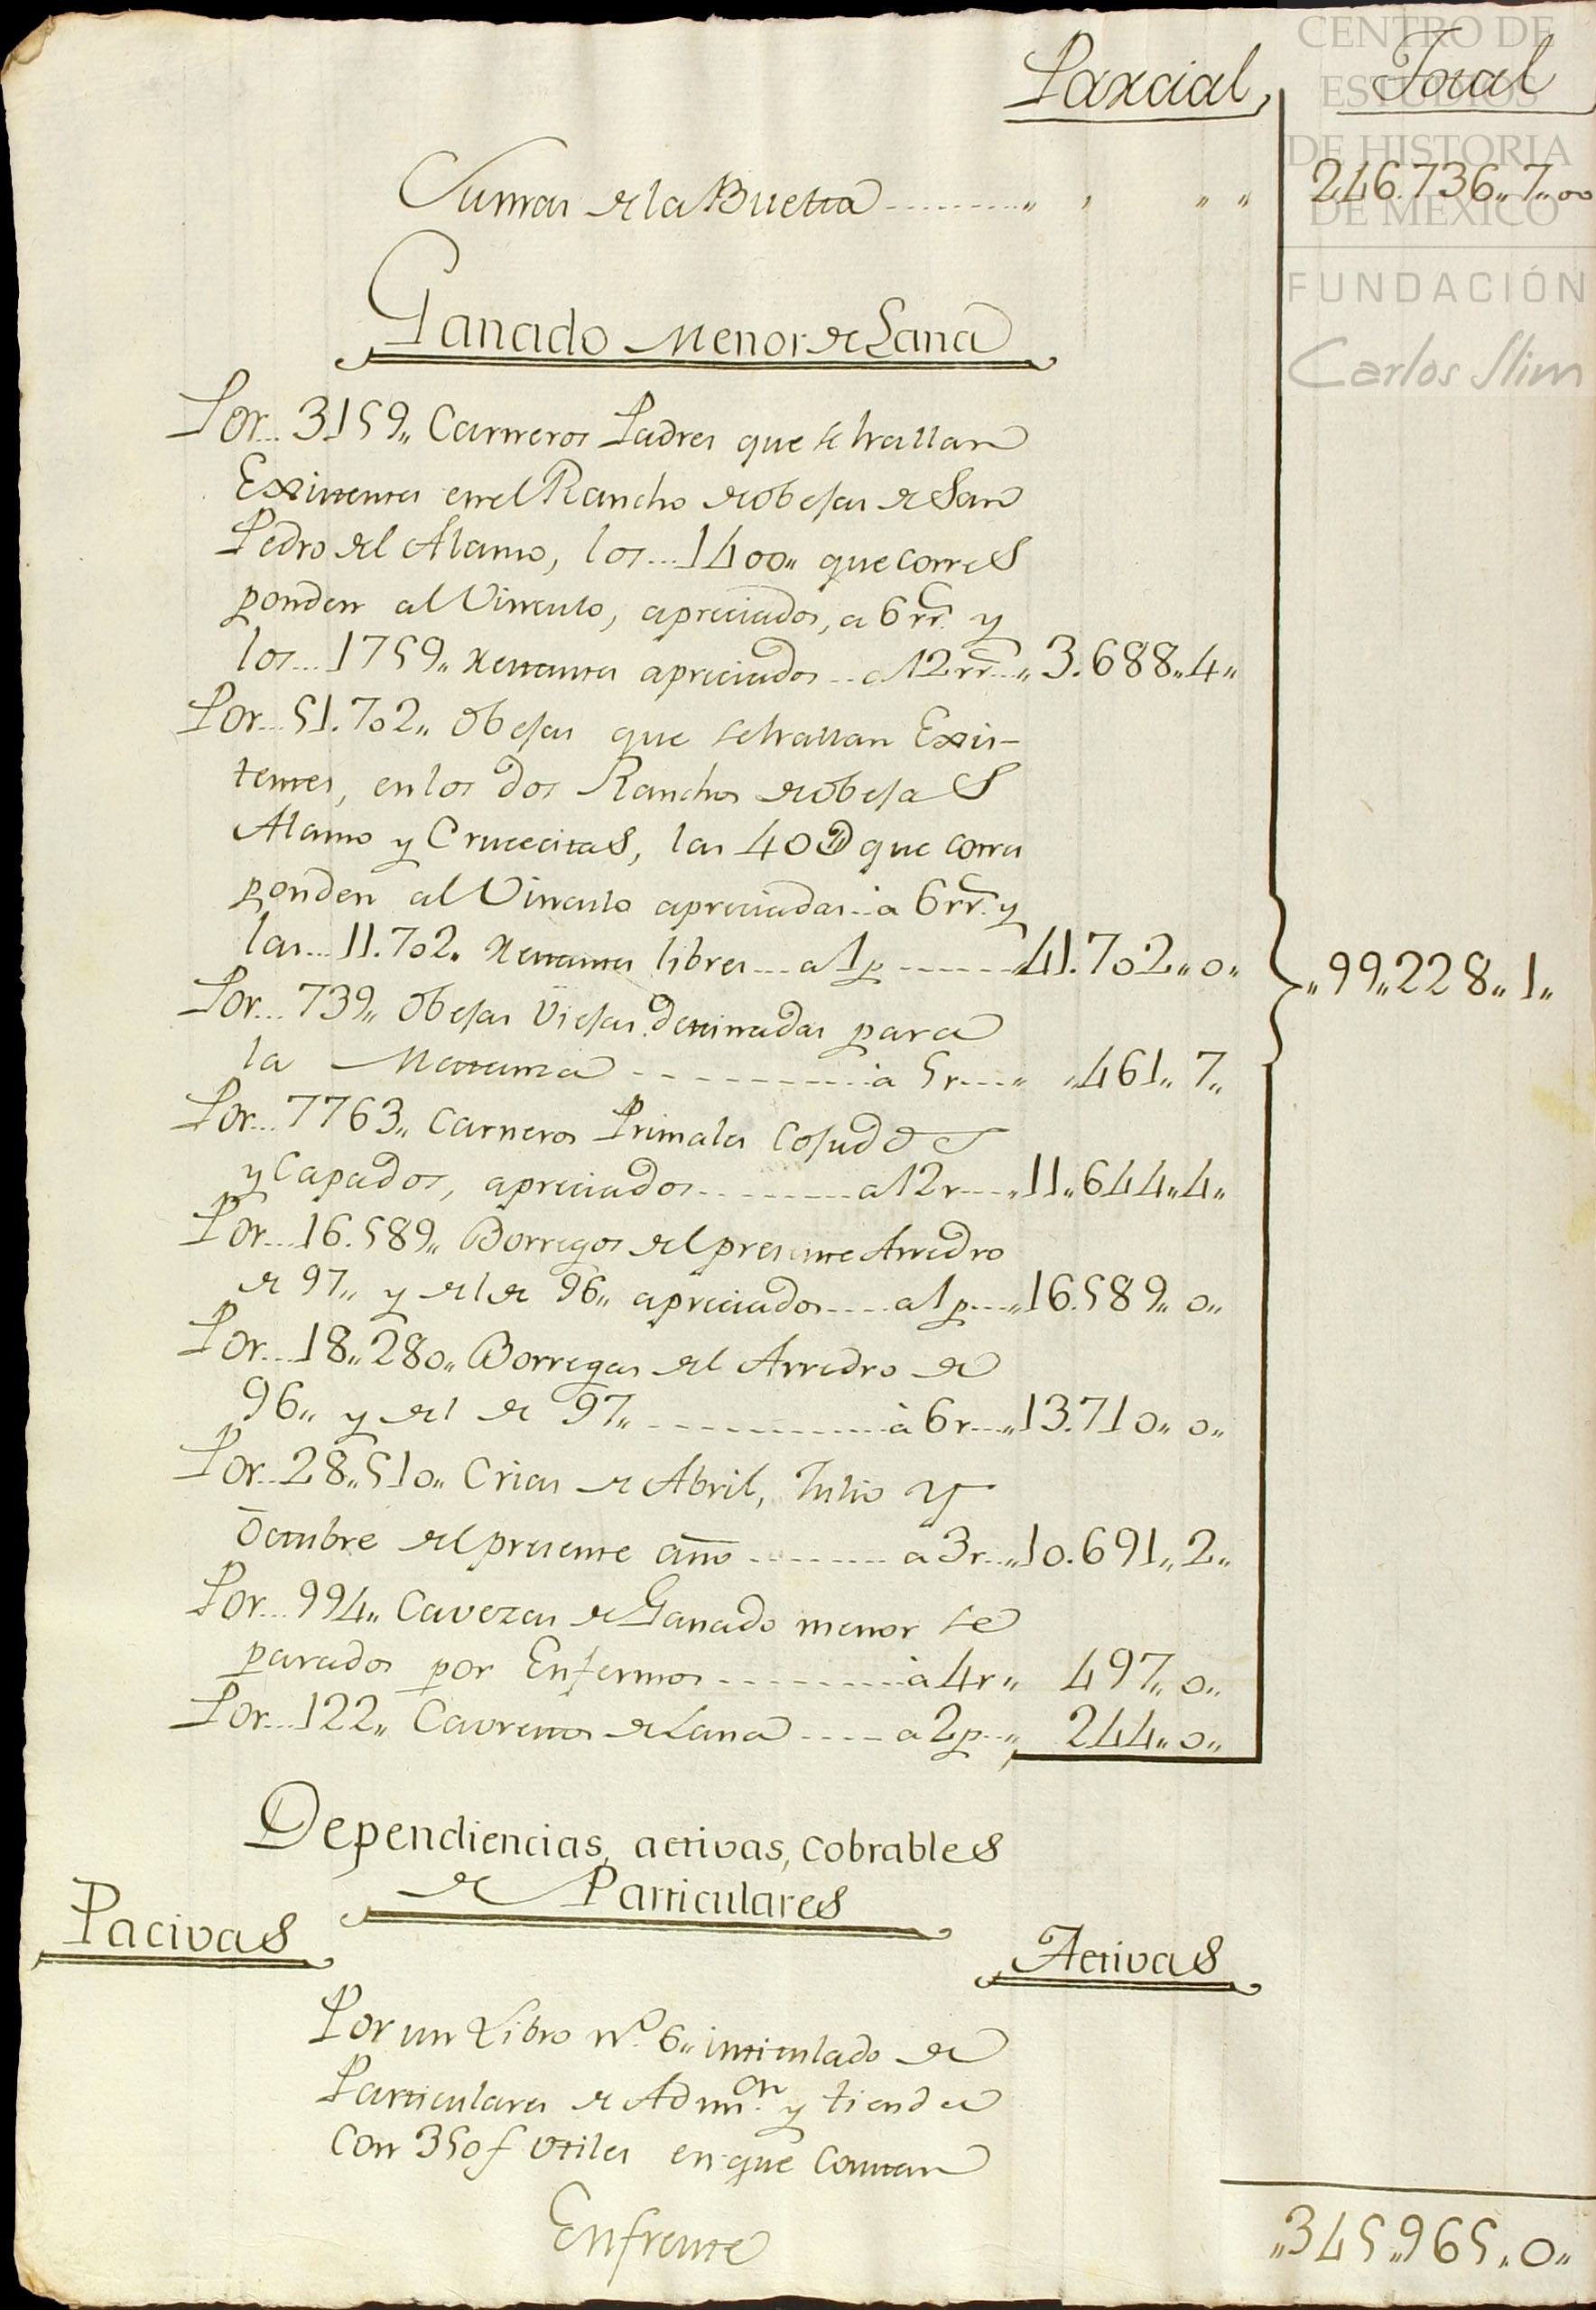 CENTRO DE
ESTUDIOS
DE HISTORIA
DE MÉXICO
FUNDACIÓN
Carlos Slim
Parcial, Total
Sumas de la Buelta ---------- „ „ „ „ 246.736„ 7„ 00
Ganado Menor de Lana
Por... 3159„ Carneros Padres que se hallan
Existentes en el Rancho de obejas de San
Pedro del Alamo, los... 1400„ que corres
ponden al Vinculo, apreciados, a 6 rr.s y
los... 1759„ restantes apreciados... a 12 rr.s...„ 3.688„ 4„
Por... 51.702„ obejas que se hallan Exis-
tentes, en los dos Ranchos de obejas
Alamo y Crucecitas, las 40D que corres
ponden al Vinculo apreciadas... à 6 rr.s y
las... 11.702„ restantes libres... a 1 p ------„ 41.702„ 0„
„ 99„ 228„ 1„
Por... 739„ obejas viejas destinadas para
la Matanza ---------- à 5 r----„ „ 461„ 7„
Por... 7763„ Carneros Primales Cojudos
y Capados, apreciados --------- a 12 r----„ 11„ 644„ 4„
Por... 16.589„ Borregos del presente Arredro
de 97„ y del de 96„ apreciados---- a 1 p---„ 16.589„ 0„
Por... 18„ 280„ Borregas del Arredro de
96„ y del de 97„ ------------ à 6 r---„ 13.710„ 0„
Por... 28„ 510„ Crias de Abril, Julio y
octubre del presente año -------- a 3 r--„ 10.691„ 2„
Por... 994„ Cavezas de Ganado menor se
parados por Enfermos --------- à 4 r„ 497„ 0„
Por... 122„ de Lana ---- a 2 p--„ 244„ 0„
Dependiencias, activas, cobrables
de Particulares
Pacivas
Activas
Por un Libro N.º 6„ intitulado de
Particulares de Adm.on y tienda
con 350 f utiles en que constan
Enfrente
„ 345„ 965„ 0„